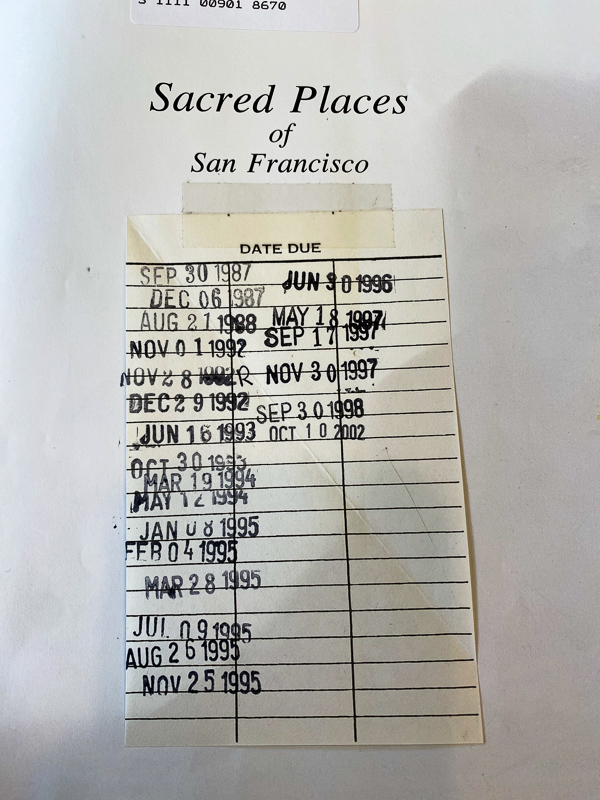 3 1111 00901 8670
Sacred Places
of
San Francisco
DATE DUE
SEP 30 1987
DEC 06 1987
AUG 21 1988
NOV 01 1992
NOV 28 1992R
DEC 29 1992
JUN 16 1993
OCT 30 1993
MAR 19 1994
MAY 12 1994
JAN 08 1995
FEB 04 1995
MAR 28 1995
JUL 09 1995
AUG 26 1995
NOV 25 1995
JUN 30 1996
MAY 18 1997
SEP 17 1997
NOV 30 1997
SEP 30 1998
OCT 10 2002